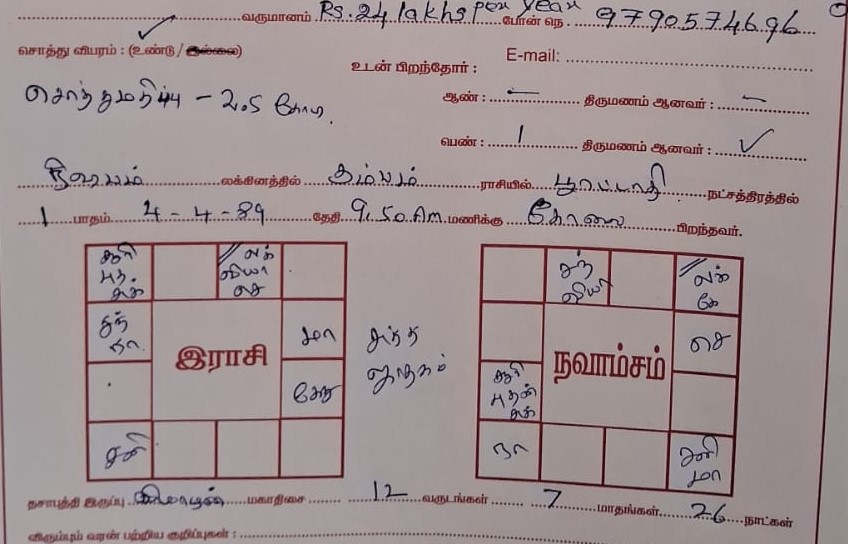 வருமானம் Rs. 24 lakhs per year போன் நெ. 9790574696
சொத்து விபரம் : (உண்டு / இல்லை) E-mail:
உடன் பிறந்தோர் :
சொத்துமதிப்பு - 2.5 கோடி. ஆண் : — திருமணம் ஆனவர் : —
பெண் : 1 திருமணம் ஆனவர் : ✓
ரிஷபம் லக்கினத்தில் கும்பம் ராசியில் பூரட்டாதி நட்சத்திரத்தில்
1 பாதம் 4-4-89 தேதி 9.50 Am மணிக்கு கோவை பிறந்தவர்.
சூரி புத சுக்
லக் வியா செ
சந் ரா.
இராசி
மா
கேது
சனி
சுத்த ஜாதகம்
சந் வியா
லக் கே
நவாம்சம்
செ
சூரி புதன் சுக்
ரா
சனி மா
தசாபுத்தி இருப்பு மகாதிசை 12 வருடங்கள் 7 மாதங்கள் 26 நாட்கள்
விரும்பும் வரன் பற்றிய குறிப்புகள் :